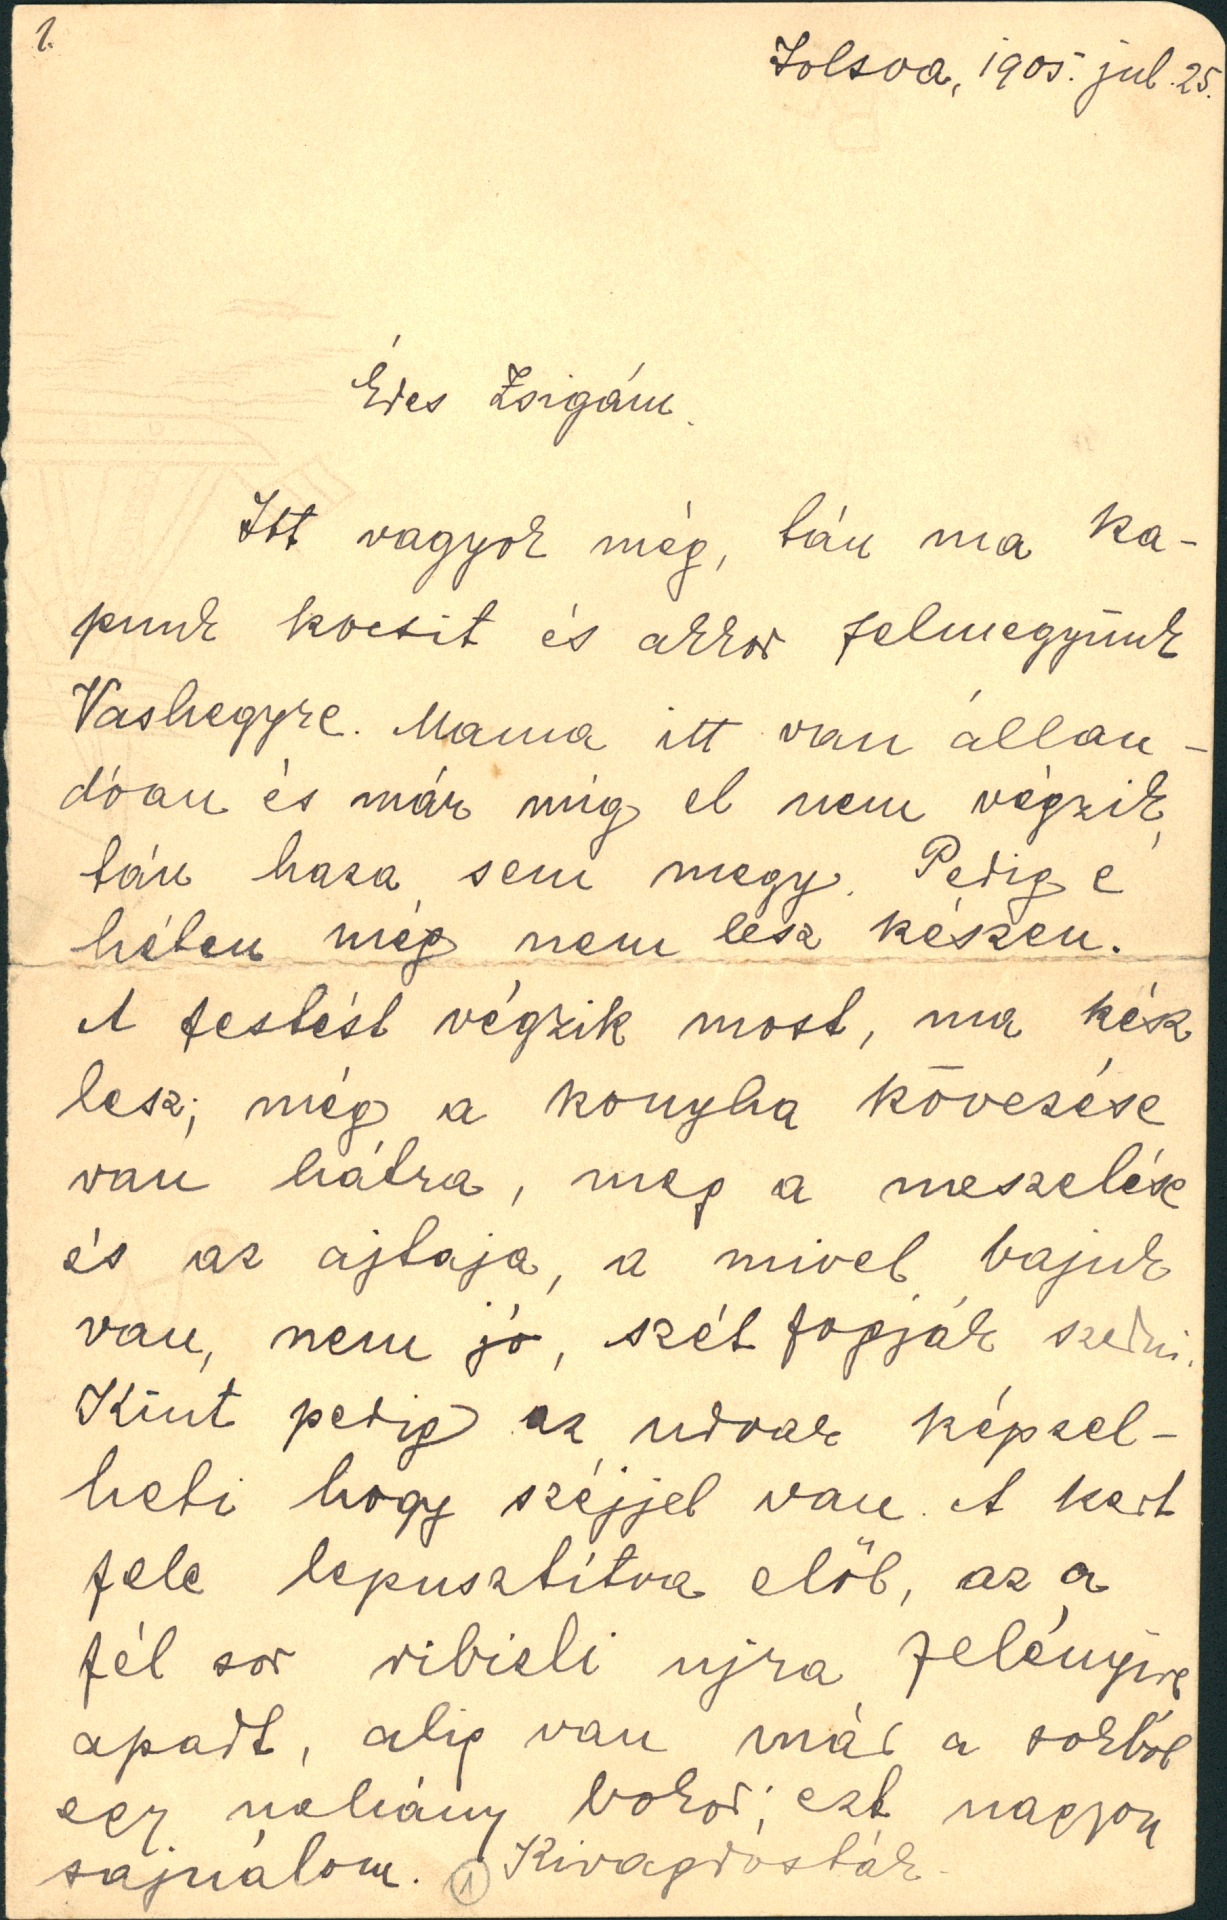 1.
Jolsva, 1905. jul. 25.
Édes Zsigám.
Itt vagyok még, tán ma ka-
punk kocsit és akkor felmegyünk
Vashegyre. Mama itt van állan-
dóan és már míg el nem végzik,
tán haza sem megy. Pedig e
héten még nem lesz készen.
A festést végzik most, ma kész
lesz; még a konyha kövezése
van hátra, meg a meszelése
és az ajtaja, a mivel bajuk
van, nem jó, szét fogják szedni.
Künt pedig az udvar képzel-
heti hogy széjjel van. A kert
fele lepusztítva elöl, az a
fél sor ribizli ujra felényire
apadt, alig van már a sokból
egy néhány bokor; ezt nagyon
sajnálom. 1 Kivagdosták.